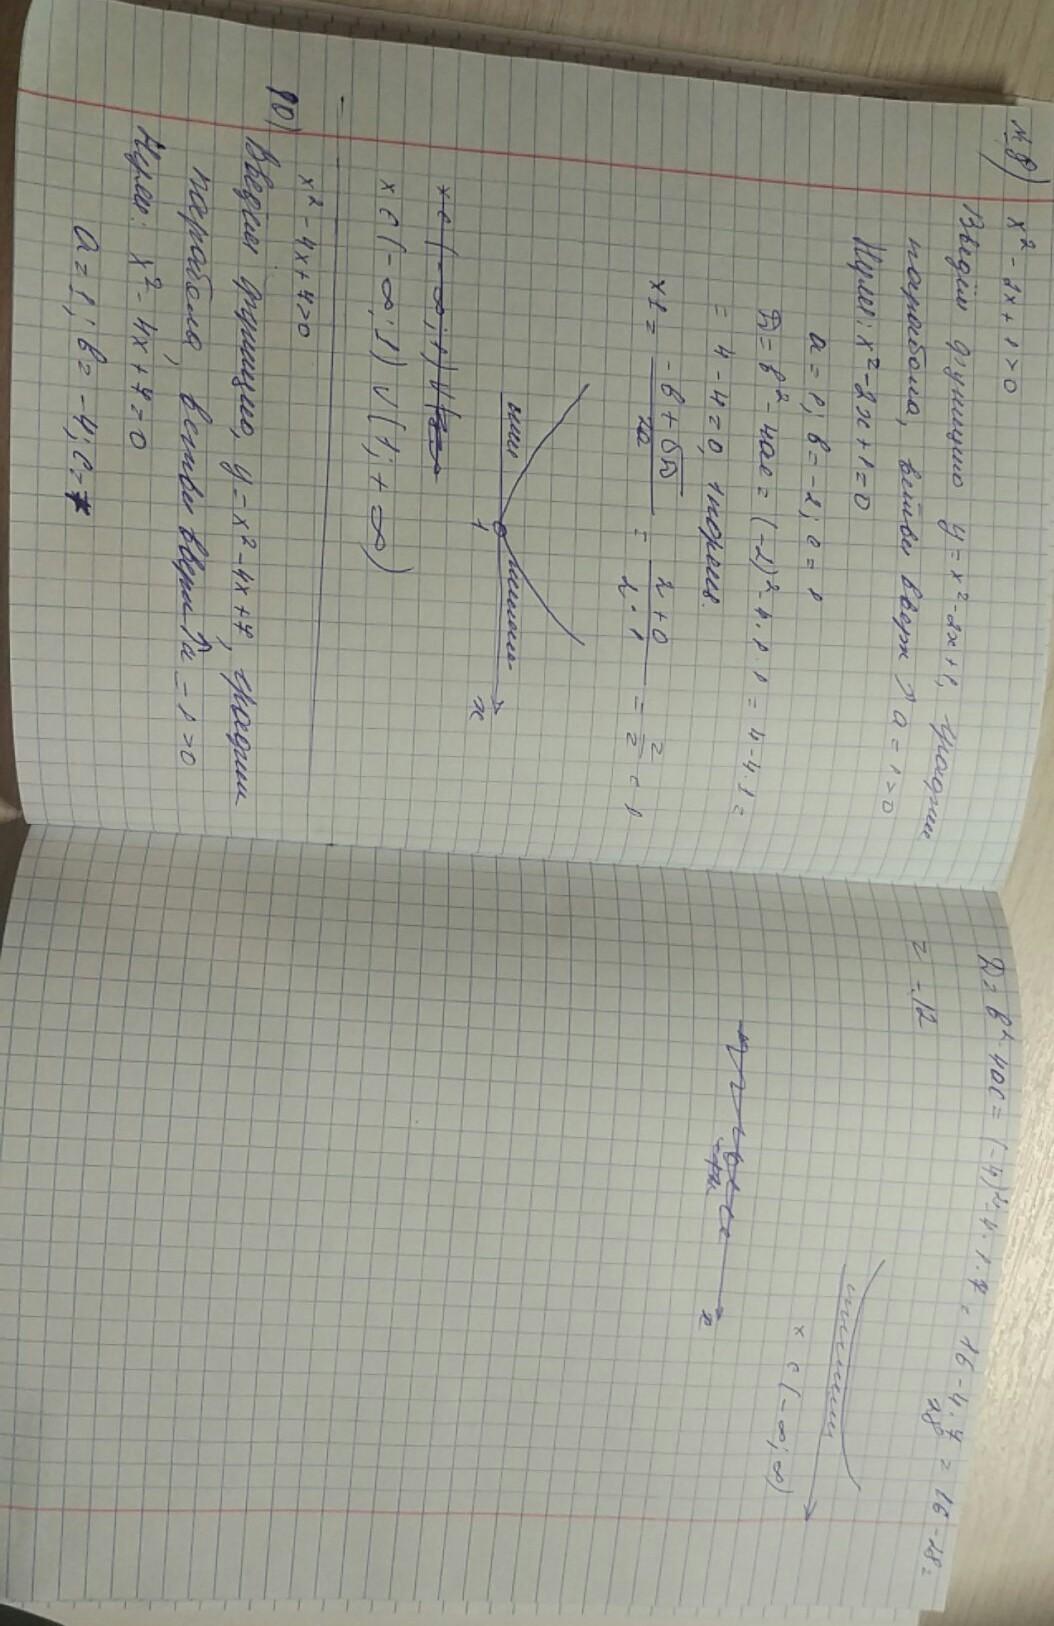 №8) x² - 2x + 1 > 0
Введём функцию y = x² - 2x + 1, график
парабола, ветви вверх ↑ a = 1 > 0
Нули: x² - 2x + 1 = 0
a = 1; в = -2; c = 1
D = в² - 4ac = (-2)² - 4·1·1 = 4 - 4·1 =
= 4 - 4 = 0, 1 корень.
x1 = (-в + √D)/2a = (2 + 0)/(2·1) = 2/2 = 1
1 x
x ∈ (-∞; 1) ∪
x ∈ (-∞; 1) ∪ (1; +∞)
10) x² - 4x + 7 > 0
Введём функцию, y = x² - 4x + 7, график
парабола, ветви вверх ↑ a = 1 > 0
Нули: x² - 4x + 7 = 0
a = 1; в = -4; c =
D = в² - 4ac = (-4)² - 4·1·7 = 16 - 4·7 = 16 - 28 =
28
= -12
x ∈ (-∞; ∞)
x